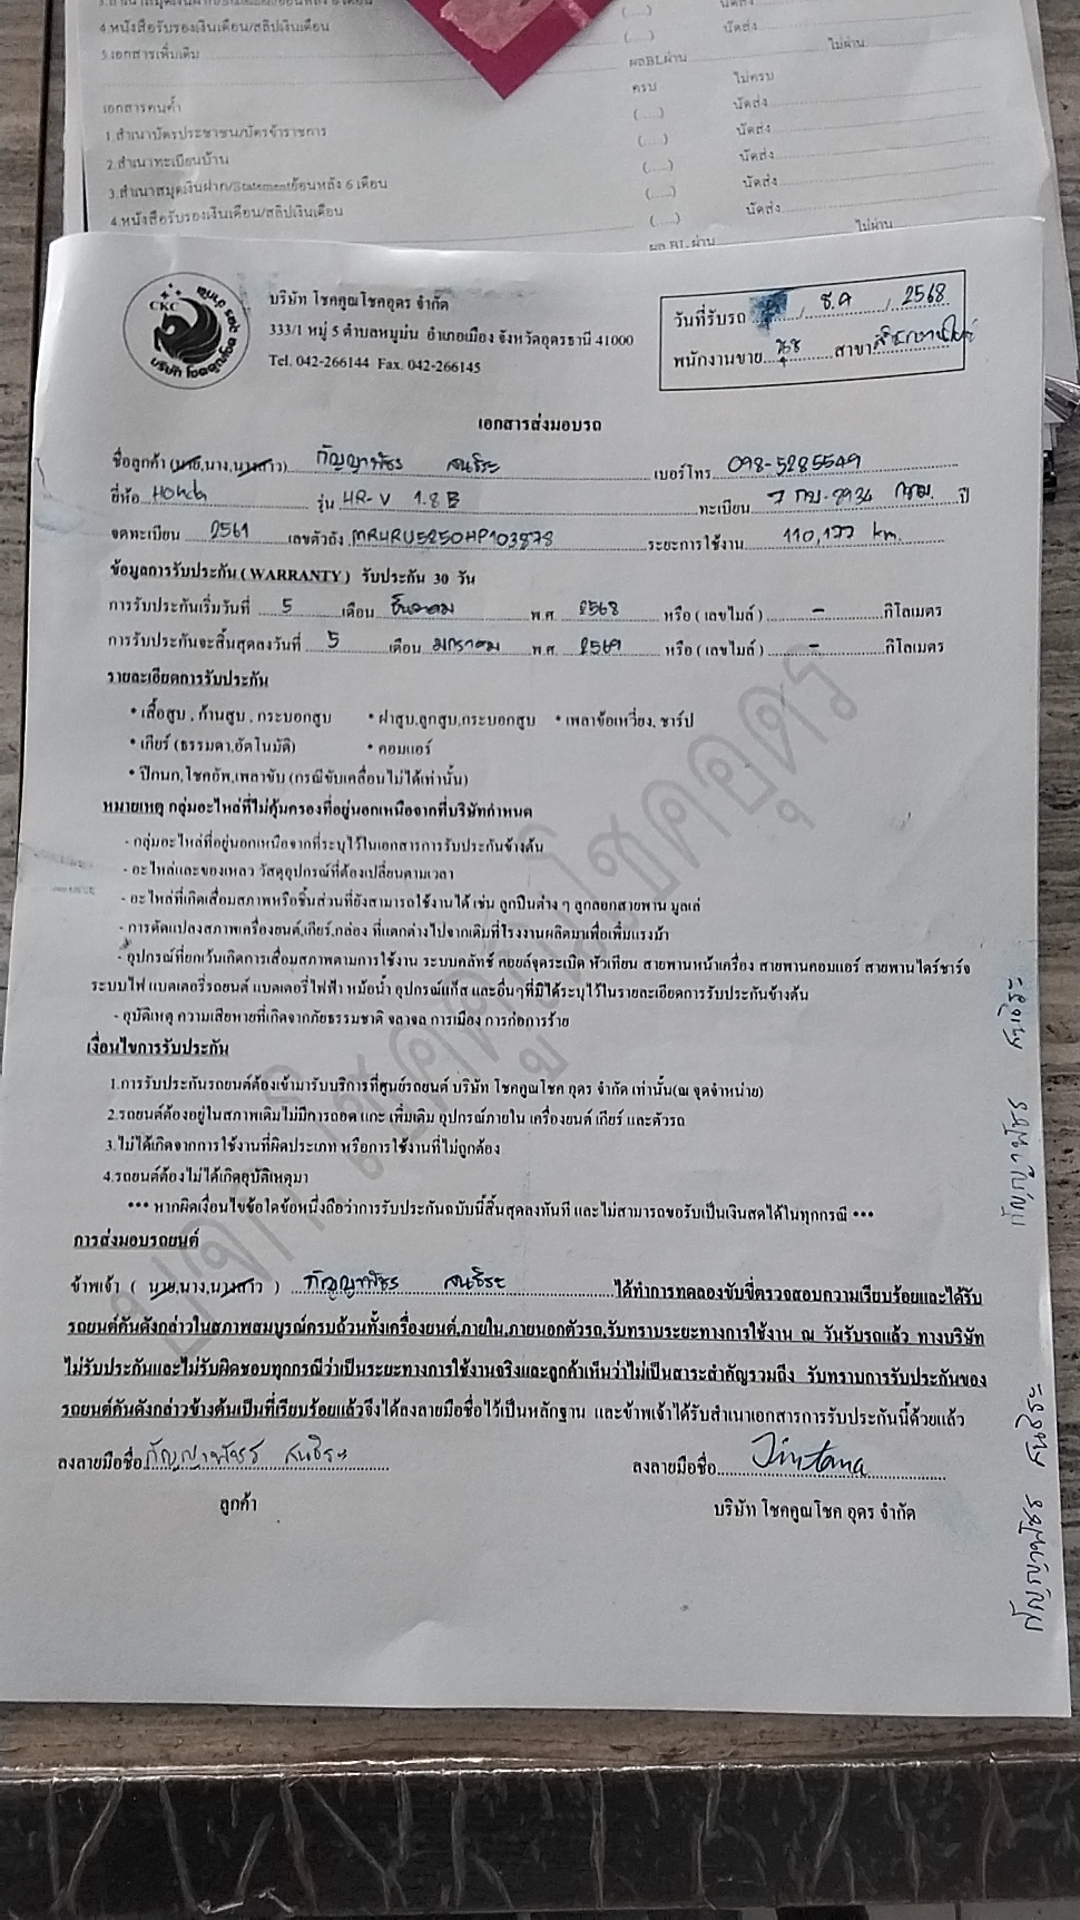 4.หนังสือรับรองเงินเดือน/สลิปเงินเดือน (.....) นัดส่ง
5.เอกสารเพิ่มเติม
ผลBLผ่าน ไม่ผ่าน
เอกสารคนค้ำ ครบ ไม่ครบ
1.สำเนาบัตรประชาชน/บัตรข้าราชการ (.....) นัดส่ง
2.สำเนาทะเบียนบ้าน (.....) นัดส่ง
3.สำเนาสมุดเงินฝาก/Statementย้อนหลัง 6 เดือน (.....) นัดส่ง
4.หนังสือรับรองเงินเดือน/สลิปเงินเดือน (.....) นัดส่ง
ผล BL ผ่าน ไม่ผ่าน
CKC
บริษัท โชคคูณโชค อุดร จำกัด
บริษัท โชคคูณโชคอุดร จำกัด
333/1 หมู่ 5 ตำบลหมูม่น อำเภอเมือง จังหวัดอุดรธานี 41000
Tel. 042-266144 Fax. 042-266145
วันที่รับรถ / ธ.ค / 2568
พนักงานขาย สาขา
เอกสารส่งมอบรถ
ชื่อลูกค้า (นาย,นาง,นางสาว) กัญญาพัชร สนธิระ เบอร์โทร 098-5285549
ยี่ห้อ Honda รุ่น HR-V 1.8 E ทะเบียน 7 กบ-2934 กทม. ปี
จดทะเบียน 2561 เลขตัวถัง MRHRU5250HP103878 ระยะการใช้งาน 110,177 km.
ข้อมูลการรับประกัน (WARRANTY) รับประกัน 30 วัน
การรับประกันเริ่มวันที่ 5 เดือน ธันวาคม พ.ศ. 2568 หรือ ( เลขไมล์ ) - กิโลเมตร
การรับประกันจะสิ้นสุดลงวันที่ 5 เดือน มกราคม พ.ศ. 2569 หรือ ( เลขไมล์ ) - กิโลเมตร
รายละเอียดการรับประกัน
• เสื้อสูบ , ก้านสูบ , กระบอกสูบ • ฝาสูบ,ลูกสูบ,กระบอกสูบ • เพลาข้อเหวี่ยง, ชาร์ป
• เกียร์ (ธรรมดา,อัตโนมัติ) • คอมแอร์
• ปีกนก, โชคอัพ,เพลาขับ (กรณีขับเคลื่อนไม่ได้เท่านั้น)
หมายเหตุ กลุ่มอะไหล่ที่ไม่คุ้มครองที่อยู่นอกเหนือจากที่บริษัทกำหนด
- กลุ่มอะไหล่ที่อยู่นอกเหนือจากที่ระบุไว้ในเอกสารการรับประกันข้างต้น
- อะไหล่และของเหลว วัสดุอุปกรณ์ที่ต้องเปลี่ยนตามเวลา
- อะไหล่ที่เกิดเสื่อมสภาพหรือชิ้นส่วนที่ยังสามารถใช้งานได้ เช่น ลูกปืนต่าง ๆ ลูกลอกสายพาน มูเลย์
- การดัดแปลงสภาพเครื่องยนต์,เกียร์,กล่อง ที่แตกต่างไปจากเดิมที่โรงงานผลิตมาเพื่อเพิ่มแรงม้า
- อุปกรณ์ที่ยกเว้นเกิดการเสื่อมสภาพตามการใช้งาน ระบบคลัทช์ คอยล์จุดระเบิด หัวเทียน สายพานหน้าเครื่อง สายพานคอมแอร์ สายพานไดร์ชาร์จ
ระบบไฟ แบตเตอรี่รถยนต์ แบตเตอรี่ไฟฟ้า หม้อน้ำ อุปกรณ์แก็ส และอื่นๆที่มิได้ระบุไว้ในรายละเอียดการรับประกันข้างต้น
- อุบัติเหตุ ความเสียหายที่เกิดจากภัยธรรมชาติ จลาจล การเมือง การก่อการร้าย
เงื่อนไขการรับประกัน
1.การรับประกันรถยนต์ต้องเข้ามารับบริการที่ศูนย์รถยนต์ บริษัท โชคคูณโชค อุดร จำกัด เท่านั้น(ณ จุดจำหน่าย)
2.รถยนต์ต้องอยู่ในสภาพเดิมไม่มีการถอด แกะ เพิ่มเติม อุปกรณ์ภายใน เครื่องยนต์ เกียร์ และตัวรถ
3.ไม่ได้เกิดจากการใช้งานที่ผิดประเภท หรือการใช้งานที่ไม่ถูกต้อง
4.รถยนต์ต้องไม่ได้เกิดอุบัติเหตุมา
*** หากผิดเงื่อนไขข้อใดข้อหนึ่งถือว่าการรับประกันฉบับนี้สิ้นสุดลงทันที และไม่สามารถขอรับเป็นเงินสดได้ในทุกกรณี ***
การส่งมอบรถยนต์
ข้าพเจ้า ( นาย,นาง,นางสาว ) กัญญาพัชร สนธิระ ได้ทำการทดลองขับขี่ตรวจสอบความเรียบร้อยและได้รับ
รถยนต์คันดังกล่าวในสภาพสมบูรณ์ครบถ้วนทั้งเครื่องยนต์,ภายใน,ภายนอกตัวรถ,รับทราบระยะทางการใช้งาน ณ วันรับรถแล้ว ทางบริษัท
ไม่รับประกันและไม่รับผิดชอบทุกกรณีว่าเป็นระยะทางการใช้งานจริงและลูกค้าเห็นว่าไม่เป็นสาระสำคัญรวมถึง รับทราบการรับประกันของ
รถยนต์คันดังกล่าวข้างต้นเป็นที่เรียบร้อยแล้วจึงได้ลงลายมือชื่อไว้เป็นหลักฐาน และข้าพเจ้าได้รับสำเนาเอกสารการรับประกันนี้ด้วยแล้ว
ลงลายมือชื่อ กัญญาพัชร สนธิระ ลงลายมือชื่อ Jintana
ลูกค้า บริษัท โชคคูณโชค อุดร จำกัด
บจก.โชคคูณโชคอุดร
กัญญาพัชร สนธิระ
กัญญาพัชร สนธิระ